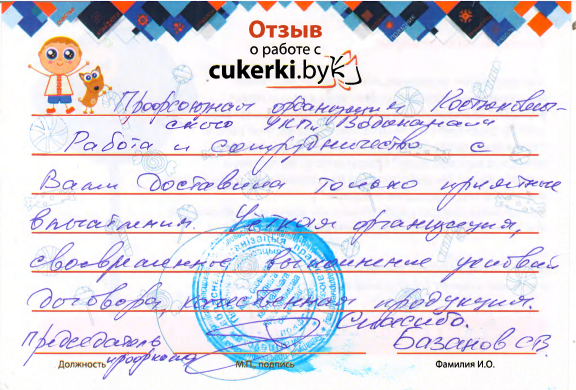 Отзыв
о работе с
cukerki.by
Профсоюзная организация Костюковичс-
ского УКП "Водоканал"
Работа и сотрудничество с
Вами доставила только приятные
впечатления. Чёткая организация,
своевременное выполнение условий
договора, качественная продукция.
Спасибо.
Председатель
профкома
Базанов С.В.
Должность
М.П., подпись
Фамилия И.О.